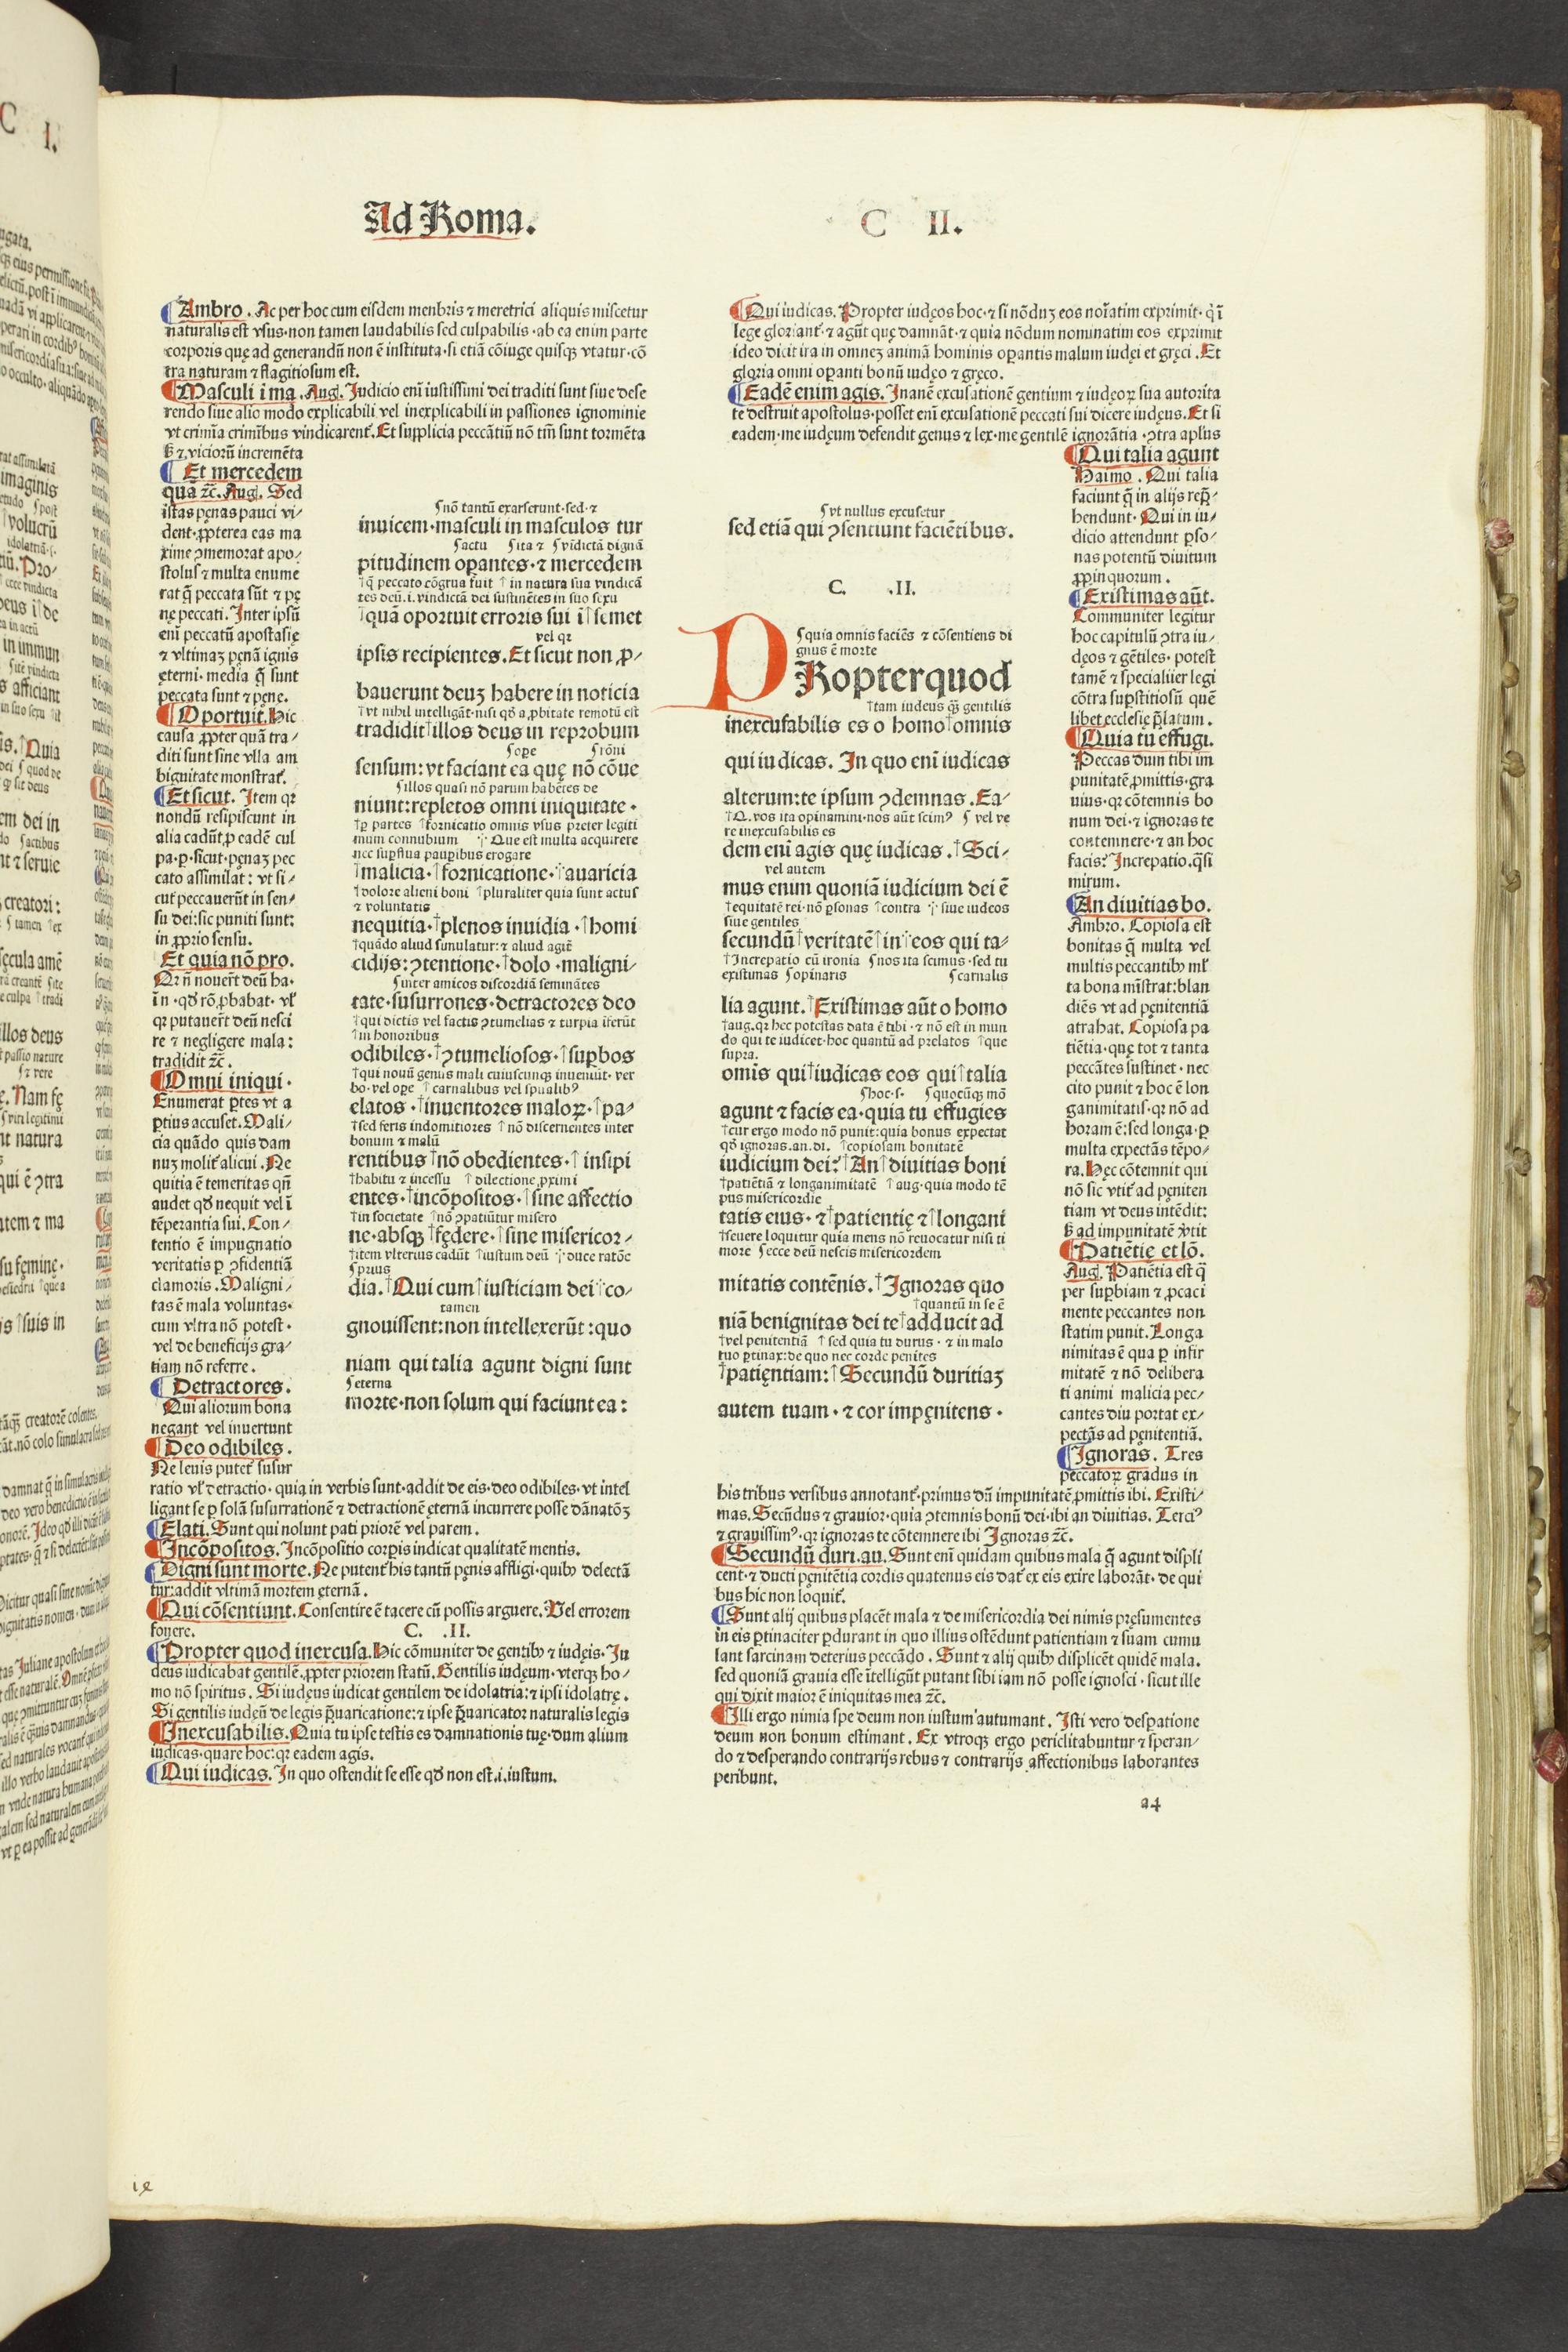 Ad Roma.
C II.
Ambro. Ac per hoc cum eisdem menbris ⁊ meretrici aliquis miscetur
naturalis est vsus·non tamen laudabilis sed culpabilis·ab ea enim parte
corporis quę ad generandū non ē instituta·si etiā cōiuge quisqꝫ vtatur·cō
tra naturam ⁊ flagitiosum est.
Masculi ī ma. Aug. Iudicio enī iustissimi dei traditi sunt siue dese
rendo siue alio modo explicabili vel inexplicabili in passiones ignominie
vt crimīa crimībus vindicarent᷑. Et supplicia peccātiū nō tm̄ sunt tormēta
ꝫ ⁊ viciorū incremēta
Et mercedem
qua ⁊c̄. Aug. Sed
istas pęnas pauci vi/
dent·ꝓpterea eas ma
xime ꝯmemorat apo/
stolus ⁊ multa enume
rat q̄ peccata sūt ⁊ pę
nę peccati. Inter ipsū
enī peccatū apostasię
⁊ vltimaꝫ pęnā ignis
ęterni·media q̄ sunt
peccata sunt ⁊ pęne.
Oportuit. Hic
causa ꝓpter quā tra/
diti sunt sine vlla am
biguitate monstrat᷑.
Et sicut. Item qꝛ
nondū resipiscunt in
alia cadūt, p eadē cul
pa·p·sicut·pęnaꝫ pec
cato assimilat: vt si/
cut peccauerūt in sen/
su dei: sic puniti sunt:
in ꝓprio sensu.
Et quia nō pro.
Qꝛ n̄ nouert̄ deū ha·
īn·qd̄ rō ꝓbabat·vl̓
qꝛ putauert̄ deū nesci
re ⁊ negligere mala:
tradidit ⁊c̄.
Omni iniqui·
Enumerat ꝑtes vt a
ꝑtius accuset. Mali/
cia quādo quis dam
nuꝫ molit᷑ alicui. Ne
quitia ē temeritas qn̄
audet qd̄ nequit vel ī
tēperantia sui. Con/
tentio ē impugnatio
veritatis ꝑ ꝯfidentiā
clamoris. Maligni/
tas ē mala voluntas·
cum vltra nō potest·
vel de beneficijs gra/
tiam nō referre.
Detractores.
Qui aliorum bona
negant vel inuertunt
Deo odibiles.
Ne leuis putet᷑ susur
ratio vl̓ detractio·quia in verbis sunt·addit de eis·deo odibiles·vt intel
ligant se ꝑ solā susurrationē ⁊ detractionē ęternā incurrere posse dānatōꝫ
Elati. Sunt qui nolunt pati priorē vel parem.
Incōpositos. Incōpositio corꝑis indicat qualitatē mentis.
Digni sunt morte. Ne putent᷑ his tantū pęnis affligi·quibꝰ delectā
tur: addit vltimā mortem ęternā.
Qui cōsentiunt. Consentire ē tacere cū possis arguere. Vel errorem
fouere.
C. .II.
Propter quod inexcusa. Hic cōmuniter de gentibꝰ ⁊ iudęis. Iu
deus iudicabat gentilē, ꝓpter priorem statū. Gentilis iudęum·vterqꝫ ho/
mo nō spiritus. Si iudęus iudicat gentilem de idolatria: ⁊ ipsi idolatrę.
Si gentilis iudęū de legis p̄uaricatione: ⁊ ipse p̄uaricator naturalis legis
Inexcusabilis. Quia tu ipse testis es damnationis tuę·dum alium
iudicas·quare hoc: qꝛ eadem agis.
Qui iudicas. In quo ostendit se esse qd̄ non est.i.iustum.
ſnō tantū exarserunt·sed·⁊
inuicem·masculi in masculos tur
ſactu ſita ⁊ ſvīdictā dignā
pitudinem oꝑantes·⁊ mercedem
†q̄ peccato cōgrua fuit †in natura sua vindicā
tes deū.i.vindictā dei sustinētes in suo sexu
†quā oportuit erroris sui ī†semet
vel qꝛ
ipsis recipientes. Et sicut non ꝓ/
bauerunt deuꝫ habere in noticia
†vt nihil intelligāt·nisi qd̄ a ꝓbitate remotū est
tradidit†illos deus in reprobum
ſope ſrōni
sensum: vt faciant ea quę nō cōue
ſillos quasi nō parum habētes de
niunt: repletos omni iniquitate·
†ꝑ partes †fornicatio omnis vsus preter legiti
mum connubium ·|· Que est multa acquirere
nec suꝑflua pauꝑibus erogare
†malicia·†fornicatione·†auaricia
†dolore alieni boni †pluraliter quia sunt actus
⁊ voluntatis
nequitia·†plenos inuidia·†homi
†quādo aliud simulatur: ⁊ aliud agit᷑
cidijs: ꝯtentione·†dolo·maligni/
ſinter amicos discordiā seminātes
tate·susurrones·detractores deo
†qui dictis vel factis ꝯtumelias ⁊ turpia īferūt
†in honoribus
odibiles·†ꝯtumeliosos·†suꝑbos
†qui nouū genus mali cuiuscunqꝫ inueniūt·ver
bo·vel ope †carnalibus vel spualibꝰ
elatos·†inuentores maloꝝ·†pa/
†sed feris indomitiores †nō discernentes inter
bonum ⁊ malū
rentibus †nō obedientes·†insipi
†habitu ⁊ incessu †dilectione ꝓximi
entes·†incōpositos·†sine affectio
†in societate †nō ꝯpatiūtur misero
ne·absqꝫ †fędere·†sine misericor/
†item vlterius cadūt †iustum deū ·|·duce ratōe
ſprius
dia.†Qui cum†iusticiam dei†co/
tamen
gnouissent: non intellexerūt: quo
niam qui talia agunt digni sunt
ſeterna
morte·non solum qui faciunt ea:
Qui iudicas. Propter iudęos hoc·⁊ si nōduꝫ eos noīatim exprimit·q̄ ī
lege gloriant᷑·⁊ agūt quę damnāt·⁊ quia nōdum nominatim eos exprimit
ideo dicit ira in omneꝫ animā hominis oꝑantis malum iudęi et gręci. Et
gloria omni oꝑanti bonū iudęo ⁊ gręco.
Eadē enim agis. Inanē excusationē gentium ⁊ iudęoꝝ sua autorita
te destruit apostolus·posset enī excusationē peccati sui dicere iudęus. Et si
eadem·me iudęum defendit genus ⁊ lex·me gentilē ignorātia·ꝯtra apl̄us
ſvt nullus excusetur
sed etiā qui ꝯsentiunt faciētibus.
C. .II.
ſquia omnis faciēs ⁊ cōsentiens di
gnus ē morte
PRopterquod
†tam iudeus qꝫ gentilis
inexcusabilis es o homo†omnis
qui iudicas. In quo enī iudicas
alterum: te ipsum ꝯdemnas. Ea/
†Q. vos ita opinamini·nos aūt scimꝰ ſ vel ve
re inexcusabilis es
dem enī agis quę iudicas.†Sci/
vel autem
mus enim quoniā iudicium dei ē
†equitatē rei·nō ꝑsonas †contra ·|· siue iudeos
siue gentiles
secundū†veritatē†in†eos qui ta/
†Increpatio cū ironia ſnos ita scimus·sed tu
existimas ſopinaris ſcarnalis
lia agunt.†Existimas aūt o homo
†aug.qꝛ hec potestas data ē tibi·⁊ nō est in mun
do qui te iudicet·hoc quantū ad prelatos †que
supra.
omīs qui†iudicas eos qui†talia
ſhoc·s· ſquocūqꝫ mō
agunt ⁊ facis ea·quia tu effugies
†cur ergo modo nō punit: quia bonus expectat
qd̄ ignoras.an.di. †copiosam bonitatē
iudicium dei?†An†diuitias boni
†patiētiā ⁊ longanimitatē †aug·quia modo tē
pus misericordie
tatis eius·⁊†patientię ⁊†longani
†seuere loquitur quia mens nō reuocatur nisi ti
more ſecce deū nescis misericordem
mitatis contēnis.†Ignoras quo
†quantū in se ē
niā benignitas dei te†adducit ad
†vel penitentiā †sed quia tu durus·⁊ in malo
tuo ꝑtinax: de quo nec corde penites
†patięntiam:†Secundū duritiaꝫ
autem tuam·⁊ cor impęnitens·
Qui talia agunt
Haimo. Qui talia
faciunt q̄ in alijs rep̄/
hendunt· Qui in iu/
dicio attendunt ꝑso/
nas potentū diuitum
ꝓpinquorum.
Existimas aūt.
Communiter legitur
hoc capitulū ꝯtra iu/
dęos ⁊ gētiles·potest
tamē ⁊ specialiter legi
cōtra suꝑstitiosū quē
libet ecclesię p̄latum.
Quia tu effugi.
Peccas dum tibi im
punitatē ꝓmittis·gra
uius·qꝛ cōtemnis bo
num dei·⁊ ignoras te
contemnere·⁊ an hoc
facis? Increpatio.q̄si
mirum.
An diuitias bo.
Ambro. Copiosa est
bonitas q̄ multa vel
multis peccantibꝰ ml̓
ta bona mīstrat: blan
diēs vt ad pęnitentiā
atrahat. Copiosa pa
tiētia·quę tot ⁊ tanta
peccātes sustinet·nec
cito punit ⁊ hoc ē lon
ganimitatis·qꝛ nō ad
horam ē: sed longa·ꝑ
multa expectās tēpo/
ra. Hęc cōtemnit qui
nō sic vtit᷑ ad pęniten
tiam vt deus intēdit:
ꝫ ad impunitatē ꝟtit
Patiētię et lō.
Aug. Patiētia est q̄
per suꝑbiam ⁊ ꝓcaci
mente peccantes non
statim punit. Longa
nimitas ē qua ꝑ infir
mitatē ⁊ nō delibera
ti animi malicia pec/
cantes diu portat ex/
pectās ad pęnitentiā.
Ignoras. Tres
peccatoꝝ gradus in
his tribus versibus annotant᷑·primus dū impunitatē ꝓmittis ibi. Existi/
mas. Secūdus ⁊ grauior·quia ꝯtemnis bonū dei·ibi an diuitias. Terciꝰ
⁊ grauissimꝰ·qꝛ ignoras te cōtemnere ibi Ignoras ⁊c̄.
Secundū duri.au. Sunt enī quidam quibus mala q̄ agunt displi
cent·⁊ ducti pęnitētia cordis quatenus eis dat᷑ ex eis exire laborāt·de qui
bus hic non loquit᷑.
Sunt alij quibus placēt mala ⁊ de misericordia dei nimis pręsumentes
in eis ꝑtinaciter ꝑdurant in quo illius ostēdunt patientiam ⁊ suam cumu
lant sarcinam deterius peccādo. Sunt ⁊ alij quibꝰ displicēt quidē mala.
sed quoniā grauia esse ītelligūt putant sibi iam nō posse ignosci·sicut ille
qui dixit maior ē iniquitas mea ⁊c̄.
Illi ergo nimia spe deum non iustum autumant. Isti vero desꝑatione
deum non bonum estimant. Ex vtroqꝫ ergo periclitabuntur ⁊ speran/
do ⁊ desperando contrarijs rebus ⁊ contrarijs affectionibus laborantes
peribunt.
a4